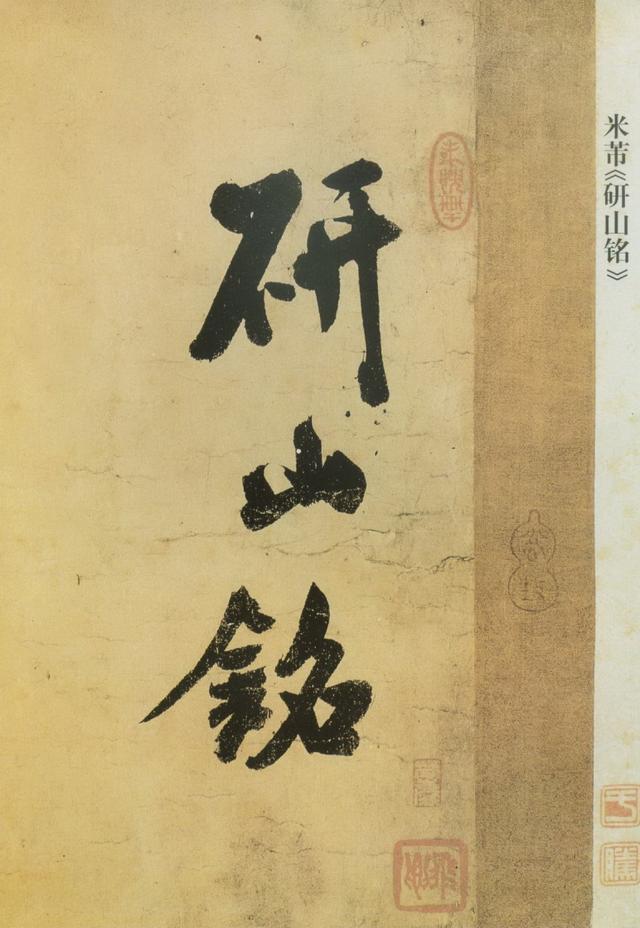 米芾《研山铭》
研山銘